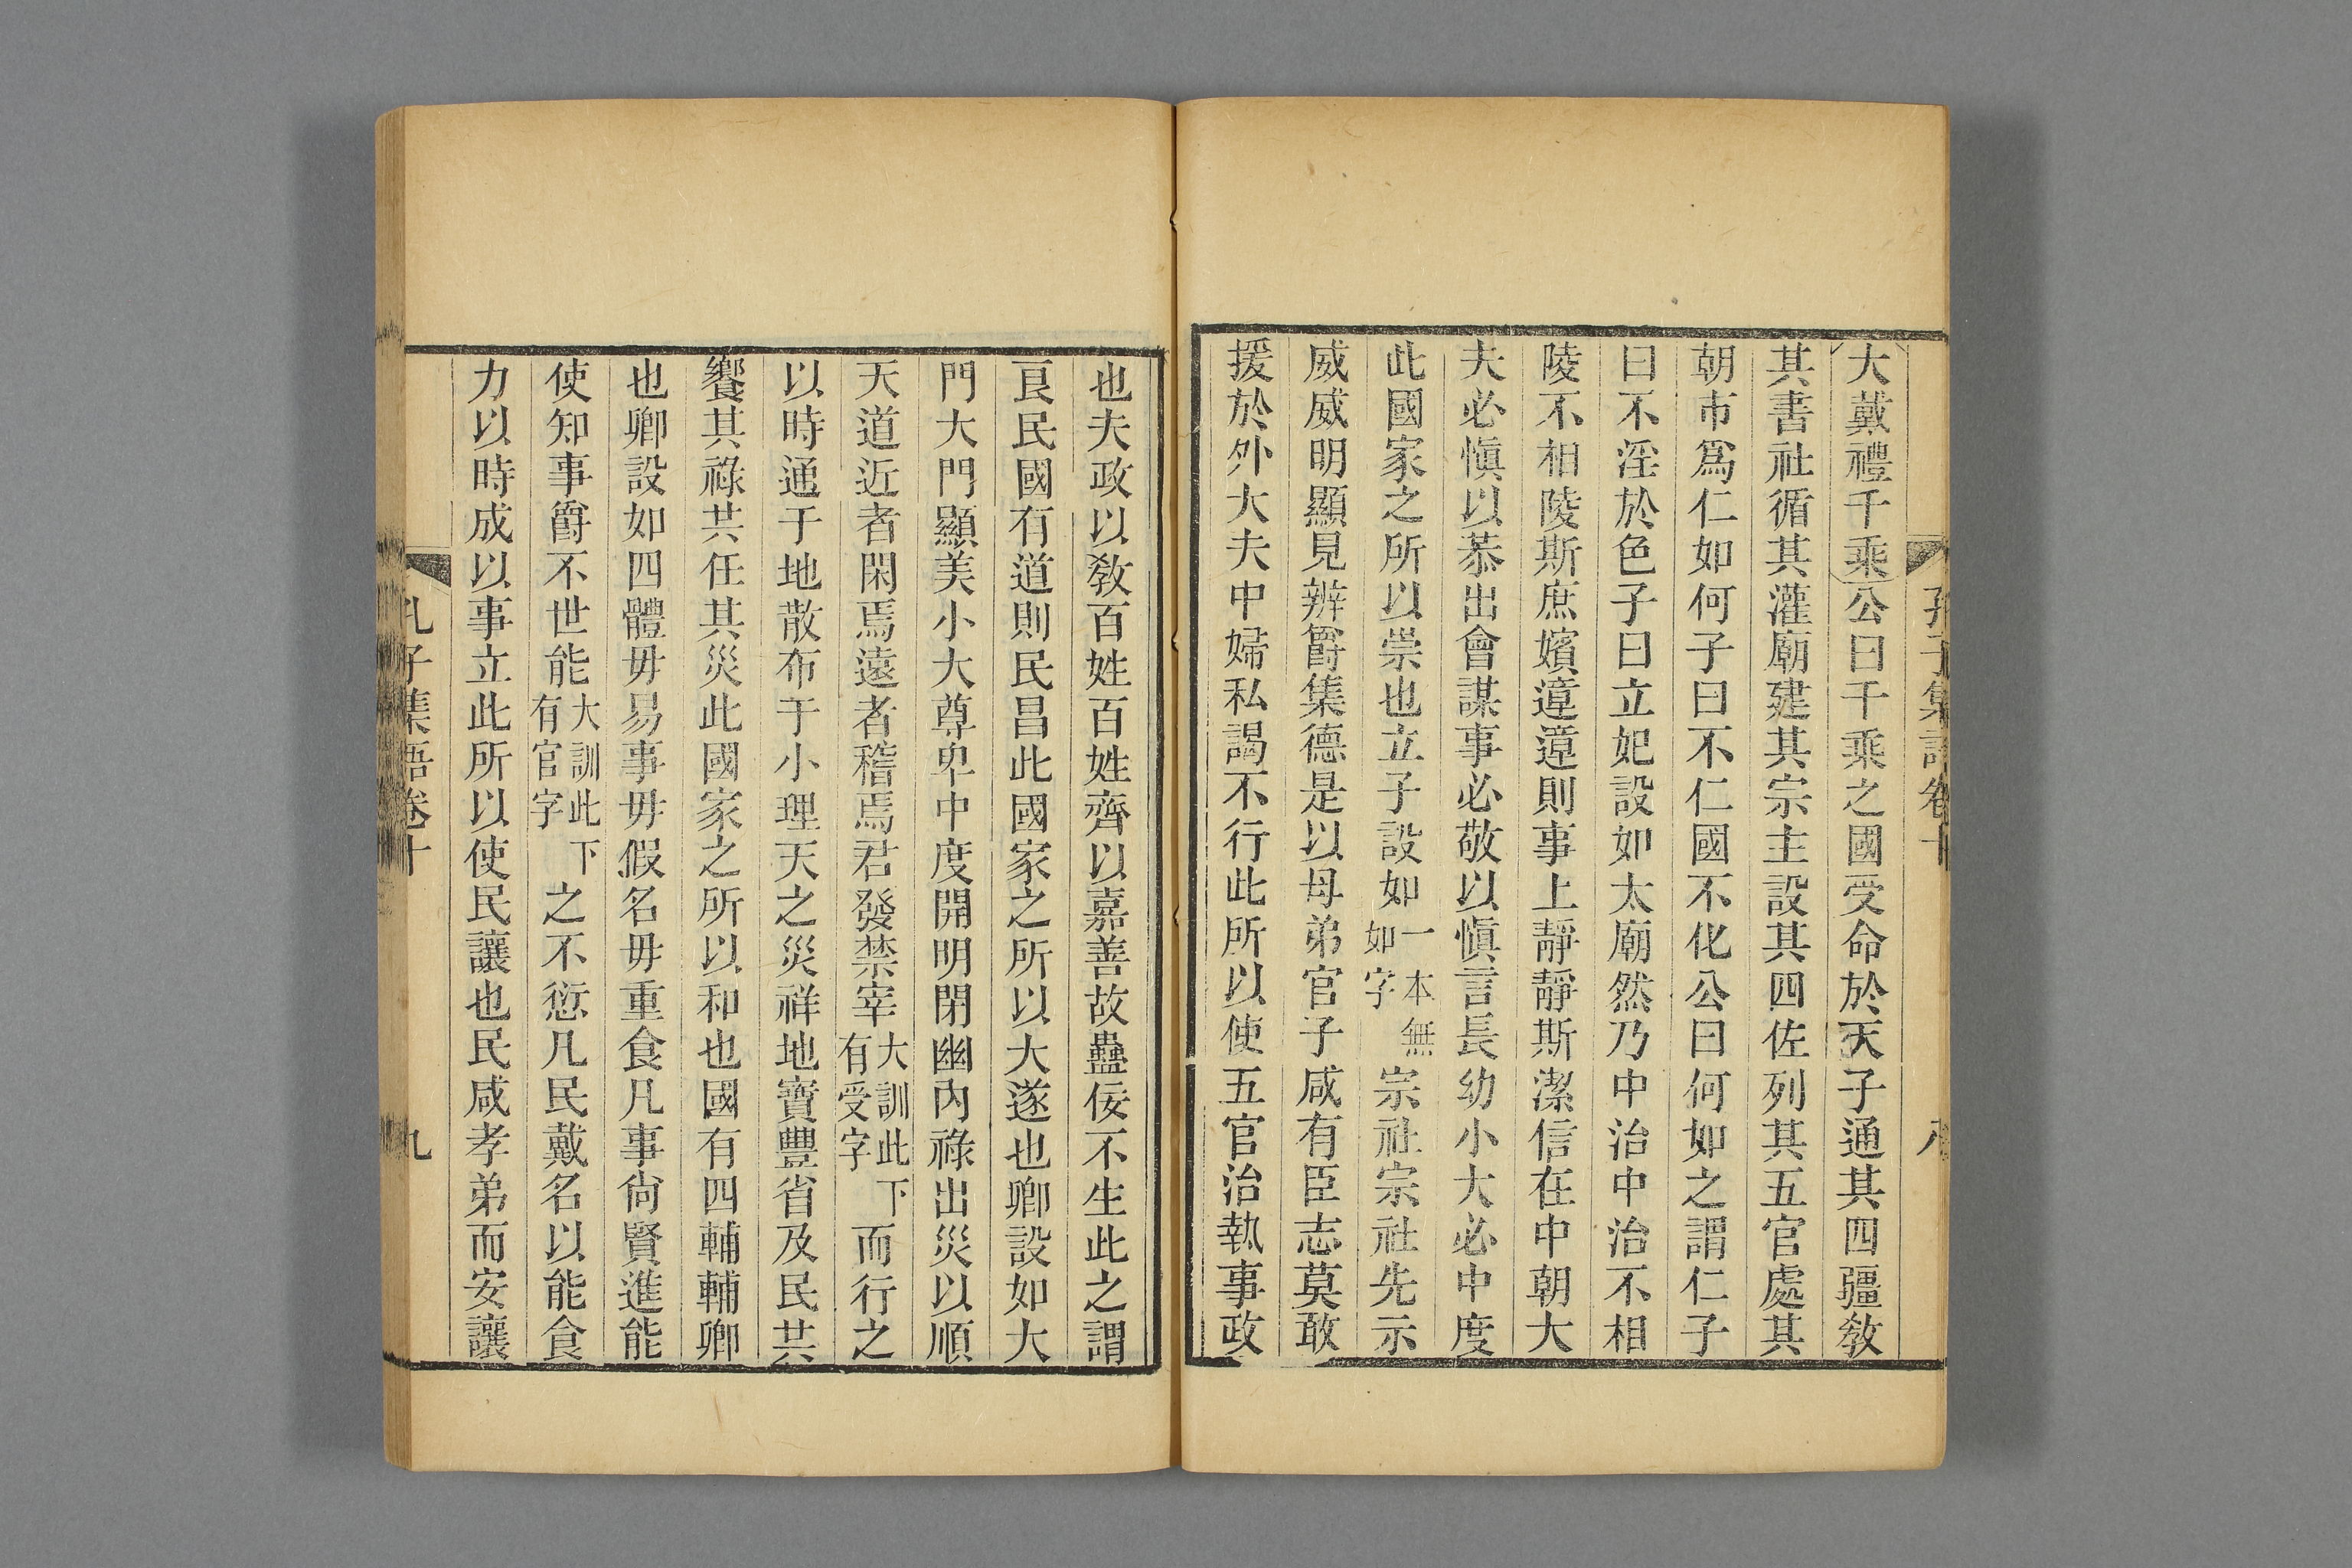 孔子集語卷十 八
大戴禮千乘公曰千乘之國受命於天子通其四疆教
其書社循其灌廟建其宗主設其四佐列其五官處其
朝市爲仁如何子曰不仁國不化公曰何如之謂仁子
曰不淫於色子曰立妃設如太廟然乃中治中治不相
陵不相陵斯庶嬪違違則事上靜靜斯潔信在中朝大
夫必愼以恭出會謀事必敬以愼言長幼小大必中度
此國家之所以崇也立子設如一本無如字宗社宗社先示
威威明顯見辨爵集德是以母弟官子咸有臣志莫敢
援於外大夫中婦私謁不行此所以使五官治執事政
也夫政以教百姓百姓齊以嘉善故蠱佞不生此之謂
良民國有道則民昌此國家之所以大遂也卿設如大
門大門顯美小大尊卑中度開明閉幽內祿出災以順
天道近者閑焉遠者稽焉君發禁宰大訓此下有受字而行之
以時通于地散布于小理天之災祥地寶豐省及民共
饗其祿共任其災此國家之所以和也國有四輔輔卿
也卿設如四體毋易事毋假名毋重食凡事尚賢進能
使知事爵不世能大訓此下有官字之不愆凡民戴名以能食
力以時成以事立此所以使民讓也民咸孝弟而安讓
孔子集語卷十 九